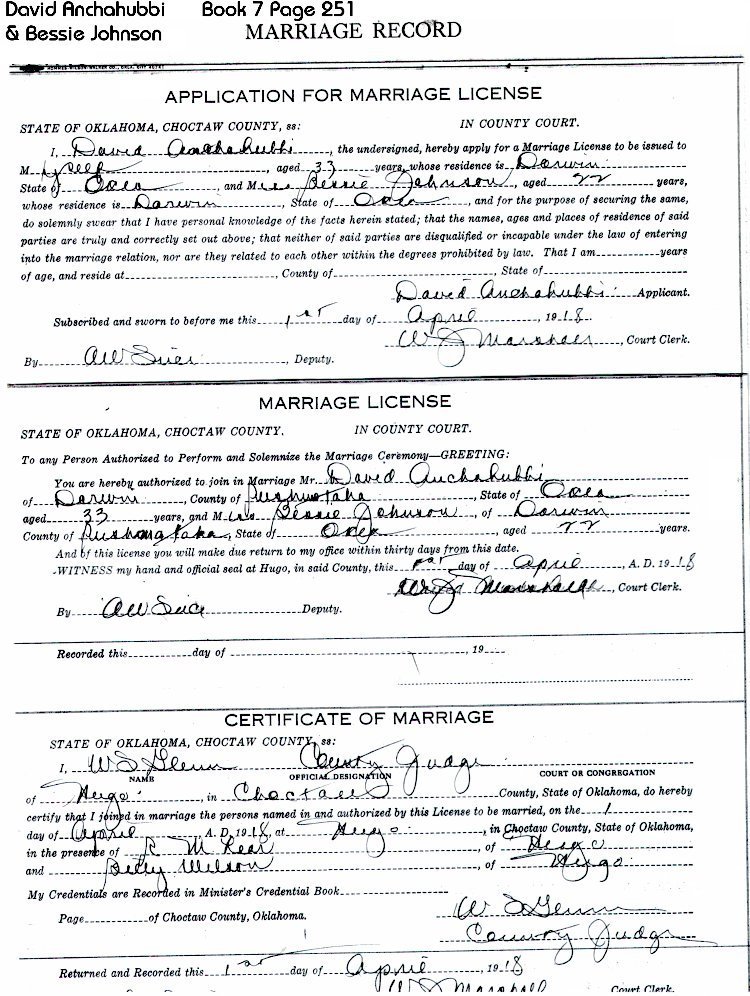 David Anchahubbi Book 7 Page 251
& Bessie Johnson MARRIAGE RECORD
APPLICATION FOR MARRIAGE LICENSE
STATE OF OKLAHOMA, CHOCTAW COUNTY, ss: IN COUNTY COURT.
I, David Anchahubbi, the undersigned, hereby apply for a Marriage License to be issued to
M yself, aged 33 years, whose residence is Darwin
State of Okla and Miss Bessie Johnson, aged 22 years,
whose residence is Darwin, State of Okla, and for the purpose of securing the same,
do solemnly swear that I have personal knowledge of the facts herein stated; that the names, ages and places of residence of said
parties are truly and correctly set out above; that neither of said parties are disqualified or incapable under the law of entering
into the marriage relation, nor are they related to each other within the degrees prohibited by law. That I am years
of age, and reside at, County of, State of
David Anchahubbi Applicant.
Subscribed and sworn to before me this 1st day of April, 1918.
W J Marshall, Court Clerk.
By, Deputy.
MARRIAGE LICENSE
STATE OF OKLAHOMA, CHOCTAW COUNTY. IN COUNTY COURT.
To any Person Authorized to Perform and Solemnize the Marriage Ceremony—GREETING:
You are hereby authorized to join in Marriage Mr. David Anchahubbi
of Darwin, County of Pushmataha, State of Okla
aged 33 years, and Miss Bessie Johnson, of Darwin
County of Pushmataha, State of Okla, aged 22 years.
And of this license you will make due return to my office within thirty days from this date.
WITNESS my hand and official seal at Hugo, in said County, this 1st day of April A. D. 1918
Marshall, Court Clerk.
By Deputy.
Recorded this day of, 19
CERTIFICATE OF MARRIAGE
STATE OF OKLAHOMA, CHOCTAW COUNTY, ss:
I, W S Glenn County Judge
NAME OFFICIAL DESIGNATION COURT OR CONGREGATION
of Hugo, in Choctaw County, State of Oklahoma, do hereby
certify that I joined in marriage the persons named in and authorized by this License to be married, on the 1
day of April A. D. 1918, at Hugo, in Choctaw County, State of Oklahoma,
in the presence of R M, of Hugo
and Wilson, of Hugo
My Credentials are Recorded in Minister's Credential Book
Page of Choctaw County, Oklahoma.
W S Glenn
County Judge
Returned and Recorded this 1st day of April 1918
W J Marshall Court Clerk.